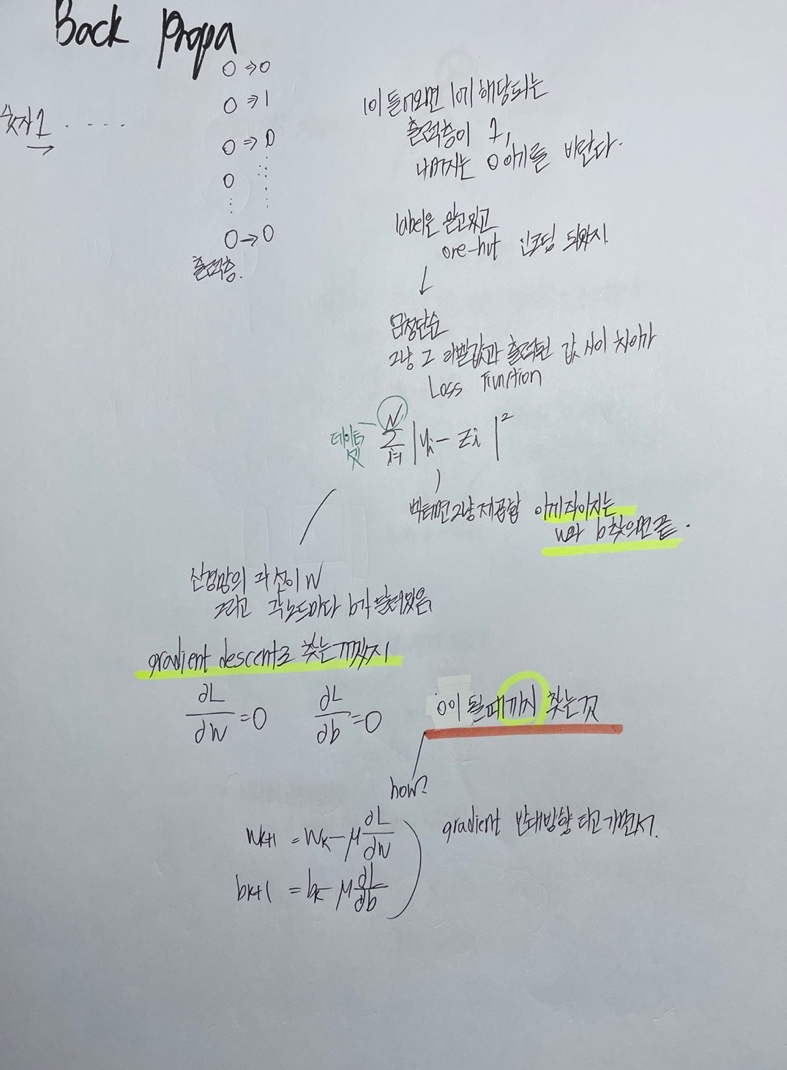 Back Propa
숫자 1 ....
→
0 → 0
0 ⇒ 1
0 ⇒ 0
0
0 → 0
출력층.
1이 들어오면 1에 해당되는
출력층이 1,
나머지는 0 이기를 바란다.
label은 알고 있고
one-hot 인코딩 되어있지
↓
엄청단순
그냥 그 라벨값과 출력된 값 사이 차이가
Loss Function
데이터
셋
N
Σ |yi - zi|²
i=1
벡터면 그냥 제곱합 이게 작아지는
w와 b 찾으면 끝.
신경망의 각 선이 W
그리고 각 노드마다 b가 달려있음
gradient descent로 찾는거까지
∂L/∂w = 0 ∂L/∂b = 0
0이 될때까지 찾는것
how?
Wk+1 = Wk - μ ∂L/∂w
bk+1 = bk - μ ∂L/∂b
gradient 반대방향 타고가면서.